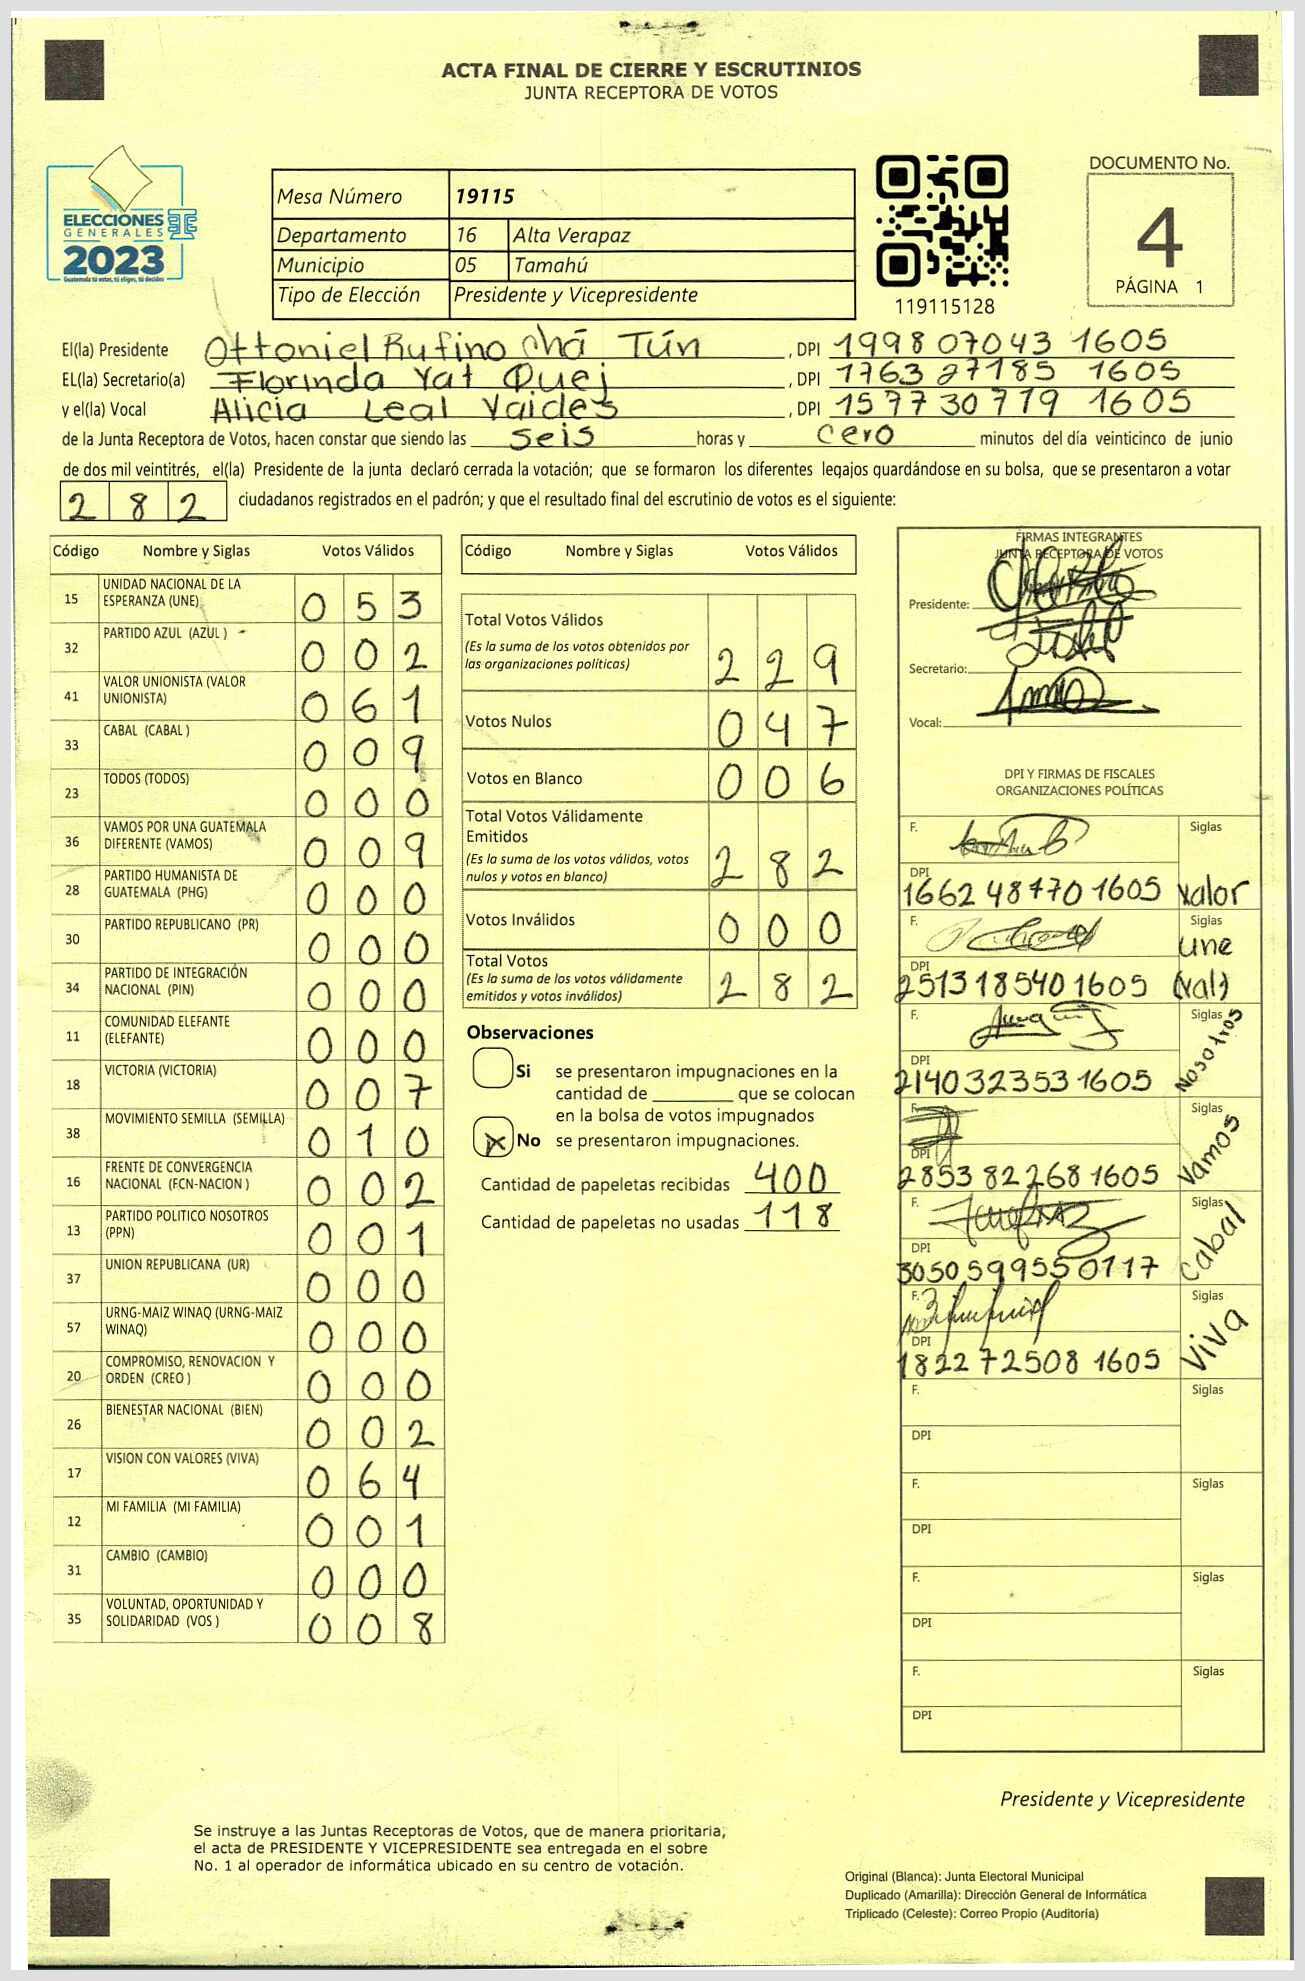 ACTA FINAL DE CIERRE Y ESCRUTINIOS
JUNTA RECEPTORA DE VOTOS
ELECCIONES
GENERALES
2023
Guatemala tú votas, tú eliges, tú decides
Mesa Número 19115
Departamento 16 Alta Verapaz
Municipio 05 Tamahú
Tipo de Elección Presidente y Vicepresidente
119115128
DOCUMENTO No.
4
PÁGINA 1
El(la) Presidente Ottoniel Rufino Chá Tún, DPI 1998 07043 1605
EL(la) Secretario(a) Florinda Yat Quej, DPI 1763 27185 1605
y el(la) Vocal Alicia Leal Vaides, DPI 1577 30779 1605
de la Junta Receptora de Votos, hacen constar que siendo las seis horas y cero minutos del día veinticinco de junio
de dos mil veintitrés, el(la) Presidente de la junta declaró cerrada la votación; que se formaron los diferentes legajos guardándose en su bolsa, que se presentaron a votar
282 ciudadanos registrados en el padrón; y que el resultado final del escrutinio de votos es el siguiente:
Código Nombre y Siglas Votos Válidos
15 UNIDAD NACIONAL DE LA
ESPERANZA (UNE) 0 5 3
32 PARTIDO AZUL (AZUL ) 0 0 2
41 VALOR UNIONISTA (VALOR
UNIONISTA) 0 6 1
33 CABAL (CABAL ) 0 0 9
23 TODOS (TODOS) 0 0 0
36 VAMOS POR UNA GUATEMALA
DIFERENTE (VAMOS) 0 0 9
28 PARTIDO HUMANISTA DE
GUATEMALA (PHG) 0 0 0
30 PARTIDO REPUBLICANO (PR) 0 0 0
34 PARTIDO DE INTEGRACIÓN
NACIONAL (PIN) 0 0 0
11 COMUNIDAD ELEFANTE
(ELEFANTE) 0 0 0
18 VICTORIA (VICTORIA) 0 0 7
38 MOVIMIENTO SEMILLA (SEMILLA) 0 1 0
16 FRENTE DE CONVERGENCIA
NACIONAL (FCN-NACION ) 0 0 2
13 PARTIDO POLITICO NOSOTROS
(PPN) 0 0 1
37 UNION REPUBLICANA (UR) 0 0 0
57 URNG-MAIZ WINAQ (URNG-MAIZ
WINAQ) 0 0 0
20 COMPROMISO, RENOVACION Y
ORDEN (CREO ) 0 0 0
26 BIENESTAR NACIONAL (BIEN) 0 0 2
17 VISION CON VALORES (VIVA) 0 6 4
12 MI FAMILIA (MI FAMILIA) 0 0 1
31 CAMBIO (CAMBIO) 0 0 0
35 VOLUNTAD, OPORTUNIDAD Y
SOLIDARIDAD (VOS ) 0 0 8
Código Nombre y Siglas Votos Válidos
Total Votos Válidos
(Es la suma de los votos obtenidos por
las organizaciones políticas) 2 2 9
Votos Nulos 0 4 7
Votos en Blanco 0 0 6
Total Votos Válidamente
Emitidos
(Es la suma de los votos válidos, votos
nulos y votos en blanco) 2 8 2
Votos Inválidos 0 0 0
Total Votos
(Es la suma de los votos válidamente
emitidos y votos inválidos) 2 8 2
Observaciones
Si se presentaron impugnaciones en la
cantidad de ________ que se colocan
en la bolsa de votos impugnados
X No se presentaron impugnaciones.
Cantidad de papeletas recibidas 400
Cantidad de papeletas no usadas 118
FIRMAS INTEGRANTES
JUNTA RECEPTORA DE VOTOS
Presidente:
Secretario:
Vocal:
DPI Y FIRMAS DE FISCALES
ORGANIZACIONES POLÍTICAS
F. Siglas
DPI
1662 48770 1605 Valor
F. Siglas
une
DPI
2513 18540 1605
F. Siglas
Nosotros
DPI
2140323531605
F. Siglas
Vamos
DPI
2853 82268 1605
F. Siglas
Cabal
DPI
3050599550117
F. Siglas
Viva
DPI
1822 72508 1605
F. Siglas
DPI
F. Siglas
DPI
F. Siglas
DPI
F. Siglas
DPI
Presidente y Vicepresidente
Se instruye a las Juntas Receptoras de Votos, que de manera prioritaria,
el acta de PRESIDENTE Y VICEPRESIDENTE sea entregada en el sobre
No. 1 al operador de informática ubicado en su centro de votación.
Original (Blanca): Junta Electoral Municipal
Duplicado (Amarilla): Dirección General de Informática
Triplicado (Celeste): Correo Propio (Auditoría)